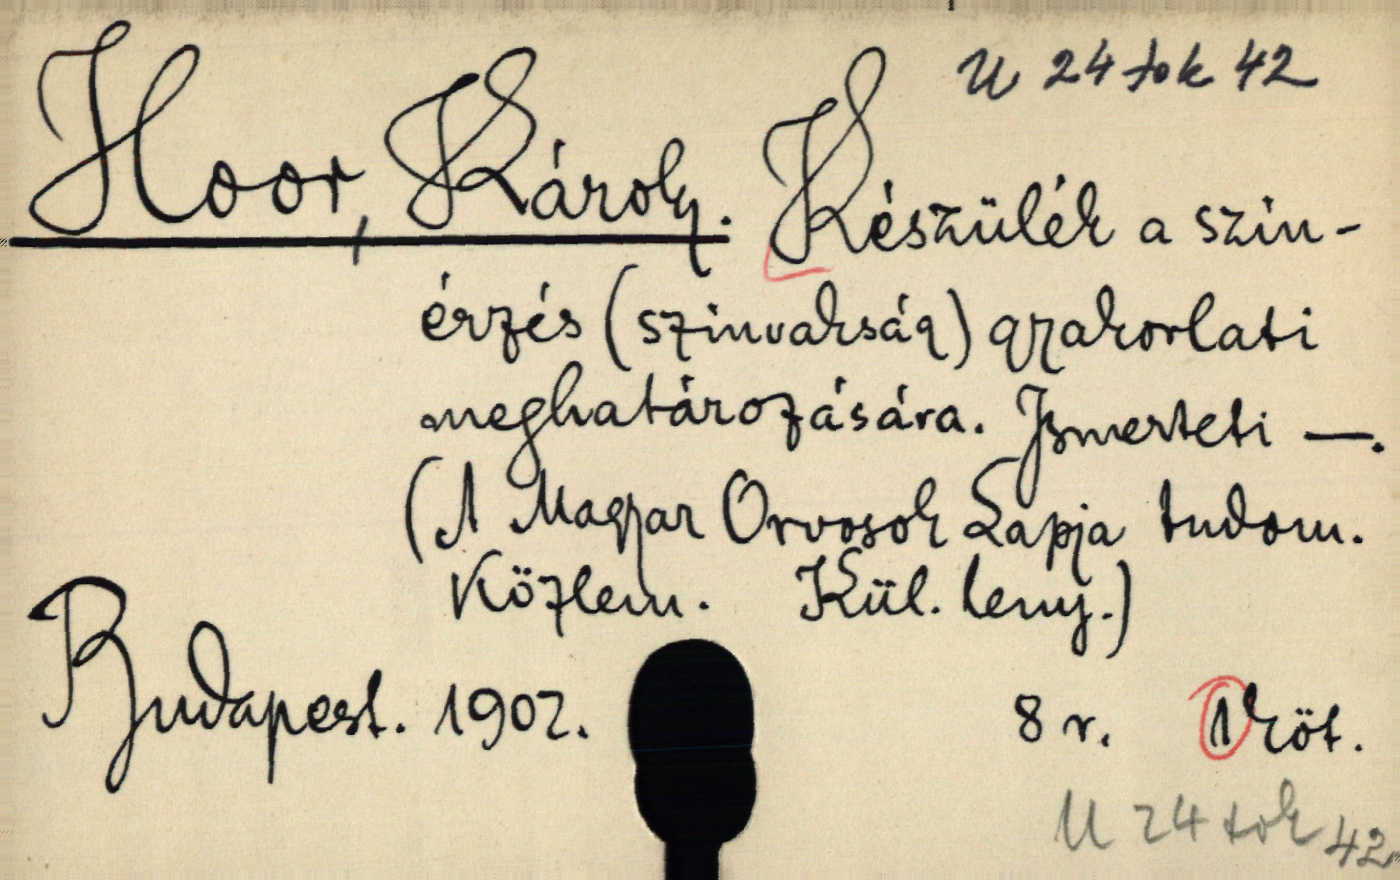 U 24 tok 42
Hoor, Károly. Készülék a szin-
érzés (szinvakság) gyakorlati
meghatározására. Ismerteti —.
(A Magyar Orvosok Lapja tudom.
Közlem. Kül. leny.)
Budapest. 1902.   8 r.   1 köt.
U 24 tok 42